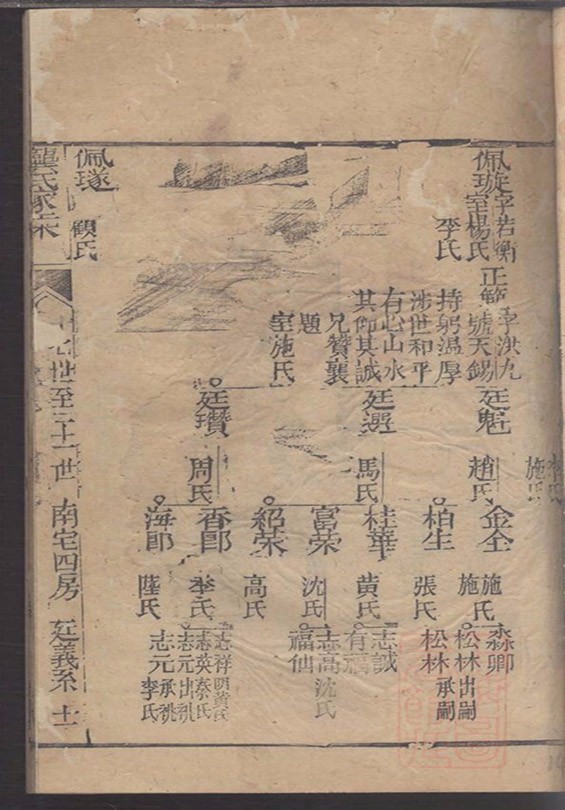 佩璇字若衡
室楊氏
李氏
正範字洪九
號天錫
持躬溫厚
涉世和平
有心山水
其師其誠
兄贊襄
題
室施氏
廷魁
趙氏
廷選
馬氏
廷瓚
周氏
金全
施氏
施
柏生
張氏
桂華
黃氏
富榮
沈氏
紹榮
高氏
香郎
李氏
海郎
陸氏
淼卿
松林出嗣
松林承嗣
志誠
有福
志高沈氏
福仙
志祥明黃氏
志英秦氏
志元出祧
志元承祧
李氏
佩璲
顧氏
龔氏家乘
世至二十一世
南宅四房
廷義系
十一
施氏